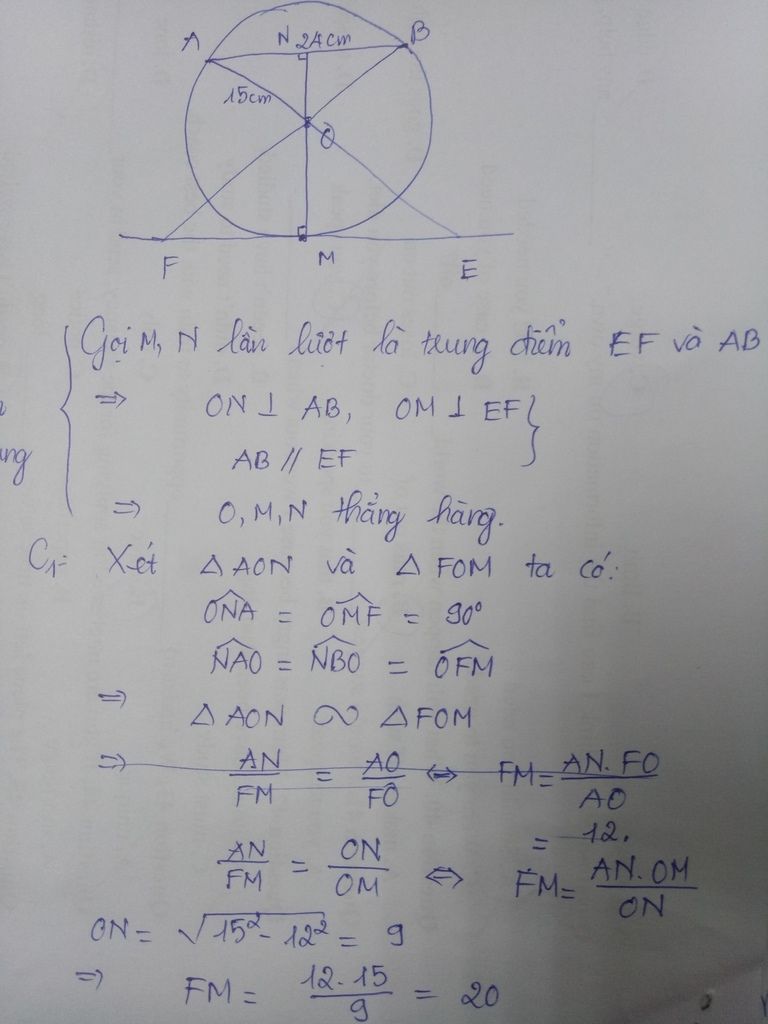 A N 24cm B
15cm
O
F M E
Gọi M, N lần lượt là trung điểm EF và AB
⇒ ON ⊥ AB, OM ⊥ EF }
ung AB // EF
⇒ O, M, N thẳng hàng.
C₁: Xét △ AON và △ FOM ta có:
\widehat{ONA} = \widehat{OMF} = 90°
\widehat{NAO} = \widehat{NBO} = \widehat{OFM}
⇒ △ AON ∽ △ FOM
⇒ AN/FM = AO/FO ⇔ FM = AN. FO/AO
= 12.
AN/FM = ON/OM ⇔ FM = AN. OM/ON
ON = √(15² - 12²) = 9
⇒ FM = 12. 15/9 = 20